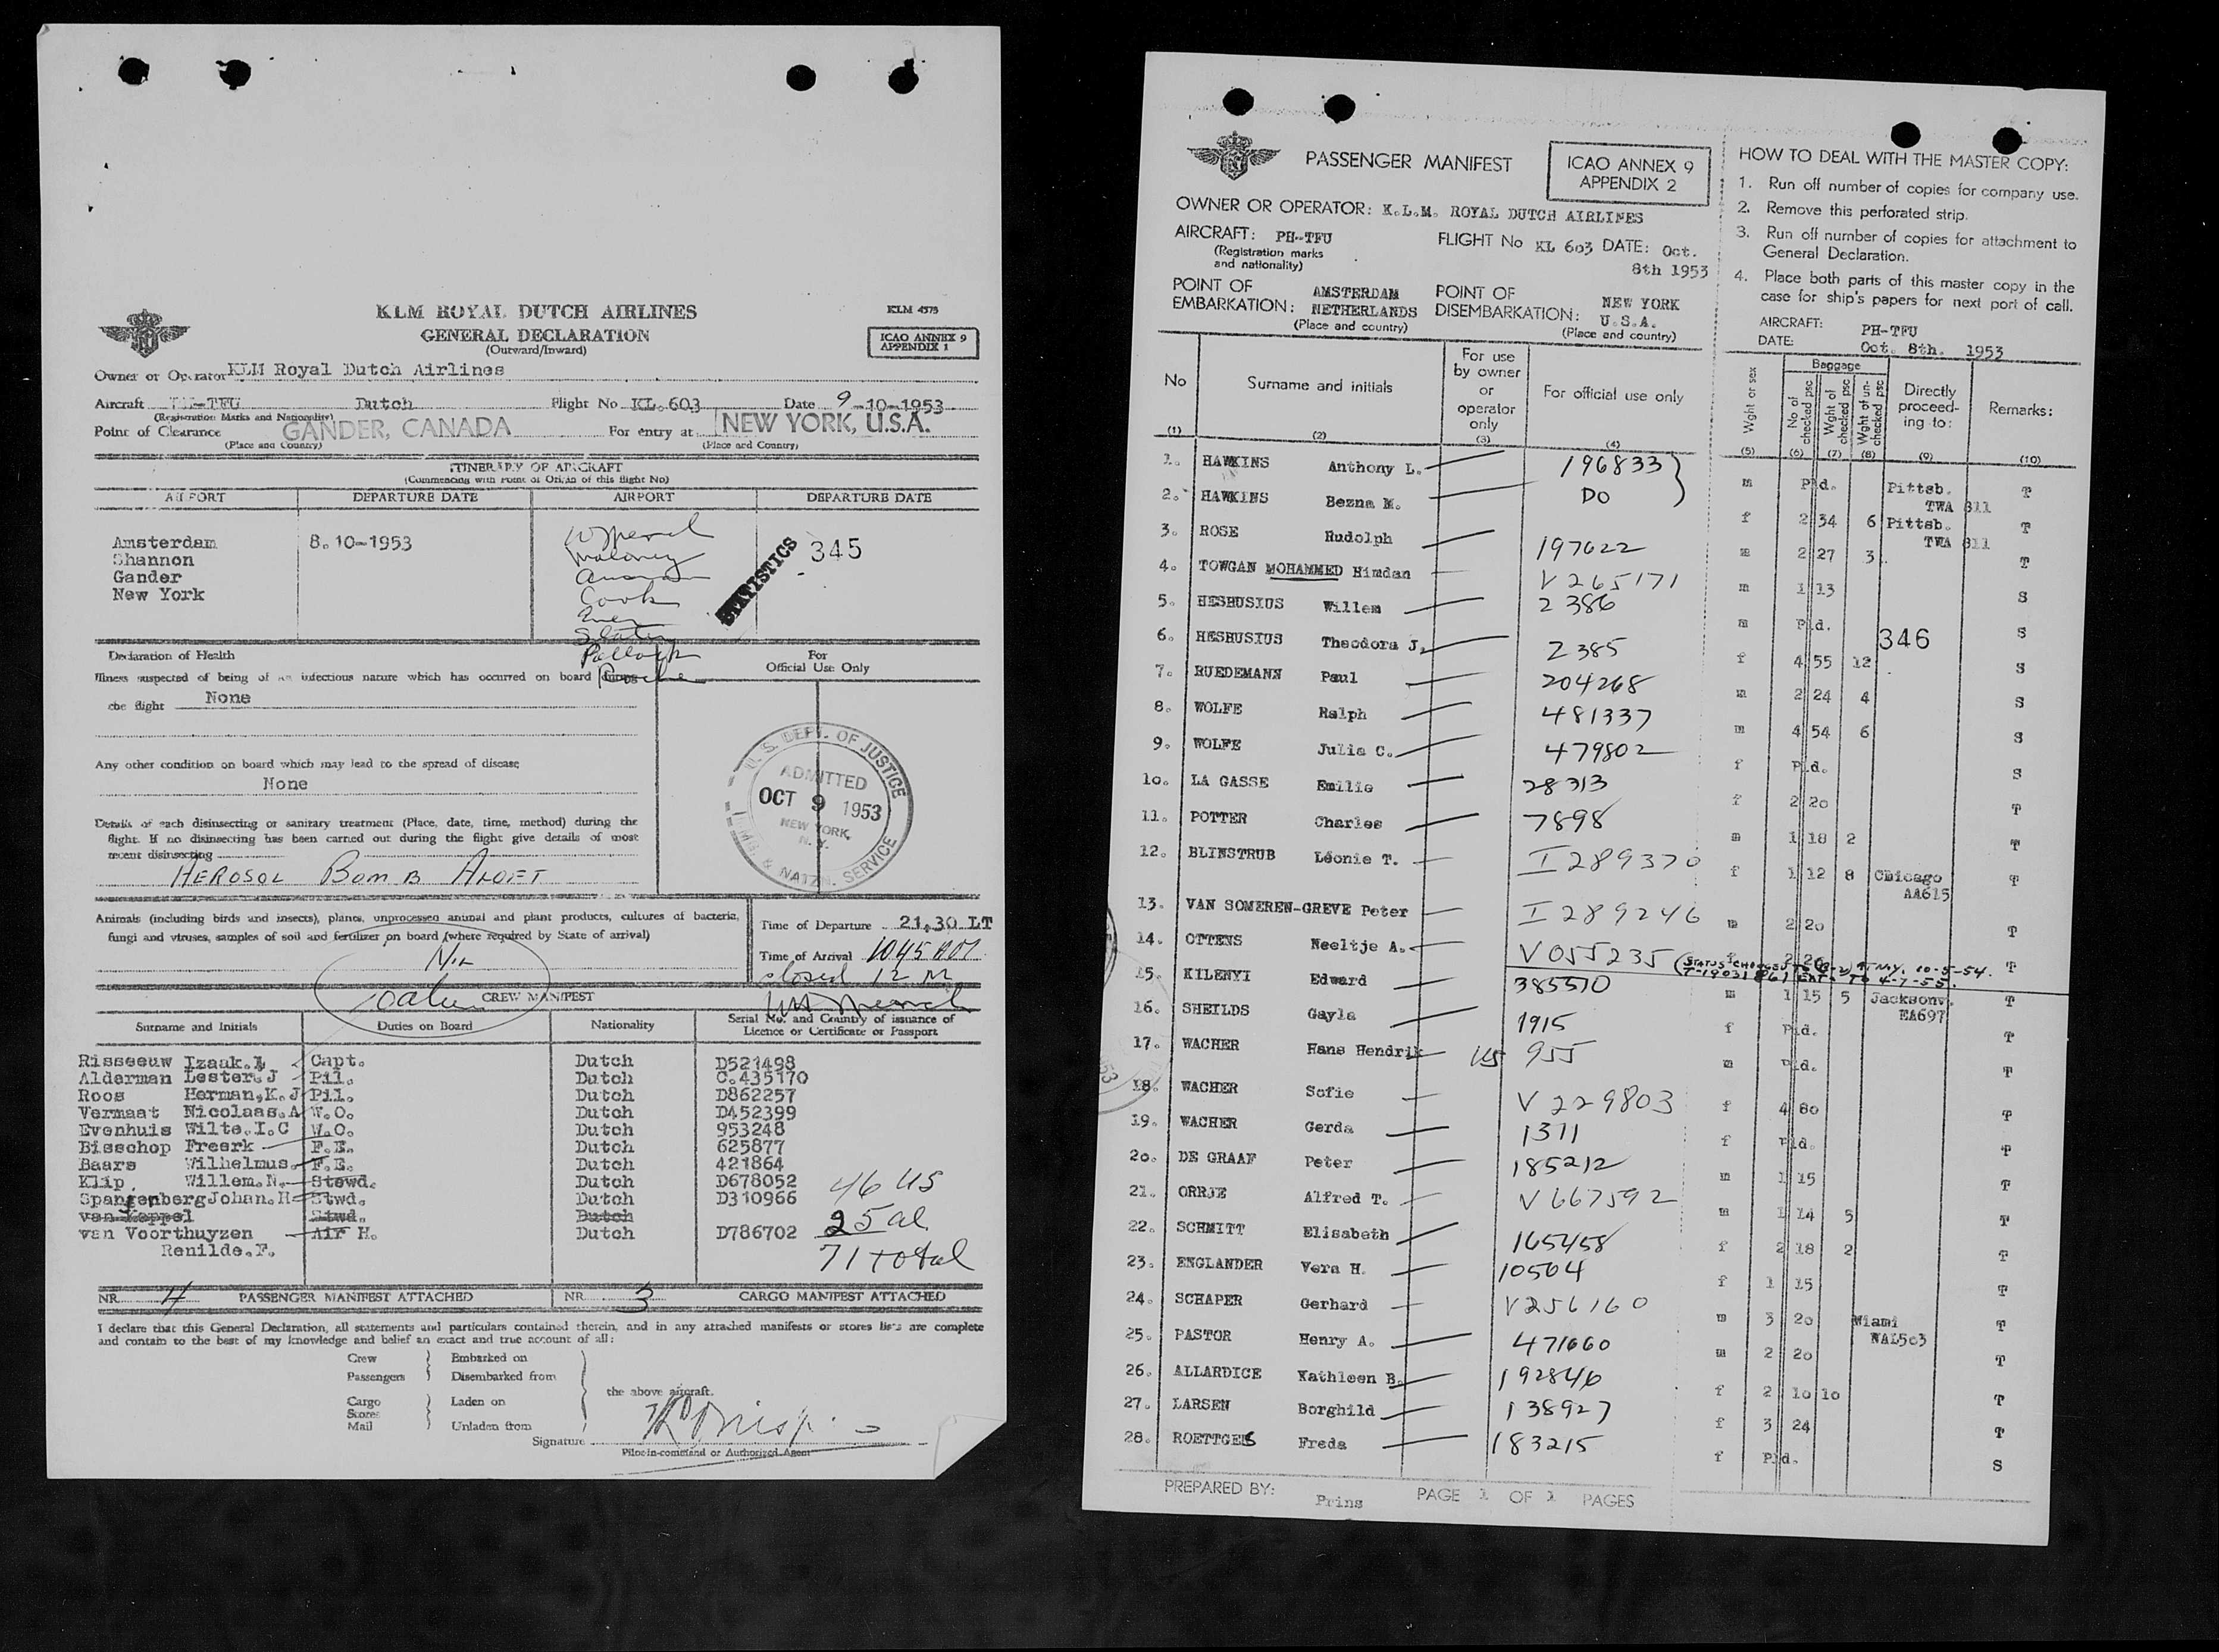 KLM ROYAL DUTCH AIRLINES
KLM 4575
GENERAL DECLARATION
(Outward/Inward)
ICAO ANNEX 9
APPENDIX 1
Owner or Operator KLM Royal Dutch Airlines
Aircraft PH-TFU Dutch Flight No KL.603 Date 9-10-1953
(Registration Marks and Nationality)
Point of Clearance GANDER, CANADA For entry at NEW YORK, U.S.A.
(Place and Country) (Place and Country)
ITINERARY OF AIRCRAFT
(Commencing with Point of Origin of this flight No)
AIRPORT DEPARTURE DATE AIRPORT DEPARTURE DATE
Amsterdam 8.10-1953
Shannon
Gander
New York
Maloney
Cook
Pollock
STATISTICS
345
Declaration of Health
For
Official Use Only
Illness suspected of being of an infectious nature which has occurred on board during
the flight None
Any other condition on board which may lead to the spread of disease
None
U.S. DEPT. OF JUSTICE
ADMITTED
OCT 9 1953
NEW YORK,
N.Y.
IMG. & NATZN. SERVICE
Details of each disinsecting or sanitary treatment (Place, date, time, method) during the
flight. If no disinsecting has been carried out during the flight give details of most
recent disinsecting
AEROSOL BOMB
Animals (including birds and insects), plants, unprocessed animal and plant products, cultures of bacteria,
fungi and viruses, samples of soil and fertilizer on board (where required by State of arrival)
Nil
Time of Departure 21.30 LT
Time of Arrival 1045
closed 12 M
CREW MANIFEST
Surname and Initials Duties on Board Nationality Serial No. and Country of issuance of
Licence or Certificate or Passport
Risseeuw Izaak. Capt. Dutch D521498
Alderman Lester.J Pil. Dutch C.435170
Roos Herman.K.J Pil. Dutch D862257
Vermaat Nicolaas.A W.O. Dutch D452399
Evenhuis Wilte.I.C W.O. Dutch 953248
Bisschop Freerk F.E. Dutch 625877
Baars Wilhelmus. F.E. Dutch 421864
Klip. Willem.N. Stewd. Dutch D678052
Spangenberg Johan.H Stwd. Dutch D310966
van Keppel Stwd. Dutch
van Voorthuyzen Air H. Dutch D786702
Renilde.F.
46 US
25 al
71 total
NR 4 PASSENGER MANIFEST ATTACHED NR. 3 CARGO MANIFEST ATTACHED
I declare that this General Declaration, all statements and particulars contained therein, and in any attached manifests or stores lists are complete
and contain to the best of my knowledge and belief an exact and true account of all:
Crew Embarked on
Passengers Disembarked from
the above aircraft.
Cargo Laden on
Stores
Mail Unladen from
Signature
Pilot-in-command or Authorized Agent
PASSENGER MANIFEST
ICAO ANNEX 9
APPENDIX 2
OWNER OR OPERATOR: K.L.M. ROYAL DUTCH AIRLINES
AIRCRAFT: PH-TFU FLIGHT No KL 603 DATE: Oct.
8th 1953
(Registration marks
and nationality)
POINT OF
EMBARKATION: AMSTERDAM
NETHERLANDS
(Place and country)
POINT OF
DISEMBARKATION: NEW YORK
U.S.A.
(Place and country)
HOW TO DEAL WITH THE MASTER COPY:
1. Run off number of copies for company use.
2. Remove this perforated strip.
3. Run off number of copies for attachment to
General Declaration.
4. Place both parts of this master copy in the
case for ship's papers for next port of call.
AIRCRAFT: PH-TFU
DATE: Oct. 8th. 1953
No Surname and initials For use by owner or operator only For official use only Wght or sex Baggage No of checked psc Wght of checked psc Wght of unchecked psc Directly proceeding to: Remarks:
(1) (2) (3) (4) (5) (6) (7) (8) (9) (10)
1. HAWKINS Anthony L. 196833 m Pld. Pittsb. TWA 811 T
2. HAWKINS Bezna M. DO f 2 34 6 Pittsb. TWA 811 T
3. ROSE Rudolph 197622 m 2 27 3 T
4. TOWGAN MOHAMMED Himdan V265171 m 1 13 S
5. HESHUSIUS Willem 2386 m Pld. S
346
6. HESHUSIUS Theodora J. 2385 f 4 55 12 S
7. RUEDEMANN Paul 204268 m 2 24 4 S
8. WOLFE Ralph 481337 m 4 54 6 S
9. WOLFE Julia C. 479802 f Pld. S
10. LA GASSE Emilie 28313 f 2 20 T
11. POTTER Charles 7898 m 1 18 2 T
12. BLINSTRUB Léonie T. I289370 f 1 12 8 Chicago AA615 T
13. VAN SOMEREN-GREVE Peter I289246 m 2 20 T
14. OTTENS Neeltje A. V055235 2 20 T
15. KILENYI Edward 385570 m 1 15 5 Jacksonv. EA697 T
16. SHEILDS Gayla 1915 f Pld. T
17. WACHER Hans Hendrik US 955 m Pld. T
18. WACHER Sofie V229803 f 4 80 T
19. WACHER Gerda 1311 f Pld. T
20. DE GRAAF Peter 185212 m 1 15 T
21. ORRJE Alfred T. V667592 m 1 14 5 T
22. SCHMITT Elisabeth 165458 f 2 18 2 T
23. ENGLANDER Vera H. 10504 f 1 15 T
24. SCHAPER Gerhard V256160 m 3 20 Miami NAL503 T
25. PASTOR Henry A. 471660 m 2 20 T
26. ALLARDICE Kathleen B. 192846 f 2 10 10 T
27. LARSEN Borghild 138927 f 3 24 T
28. ROETTGES Freda 183215 f Pld. S
PREPARED BY: Prins PAGE 1 OF 1 PAGES